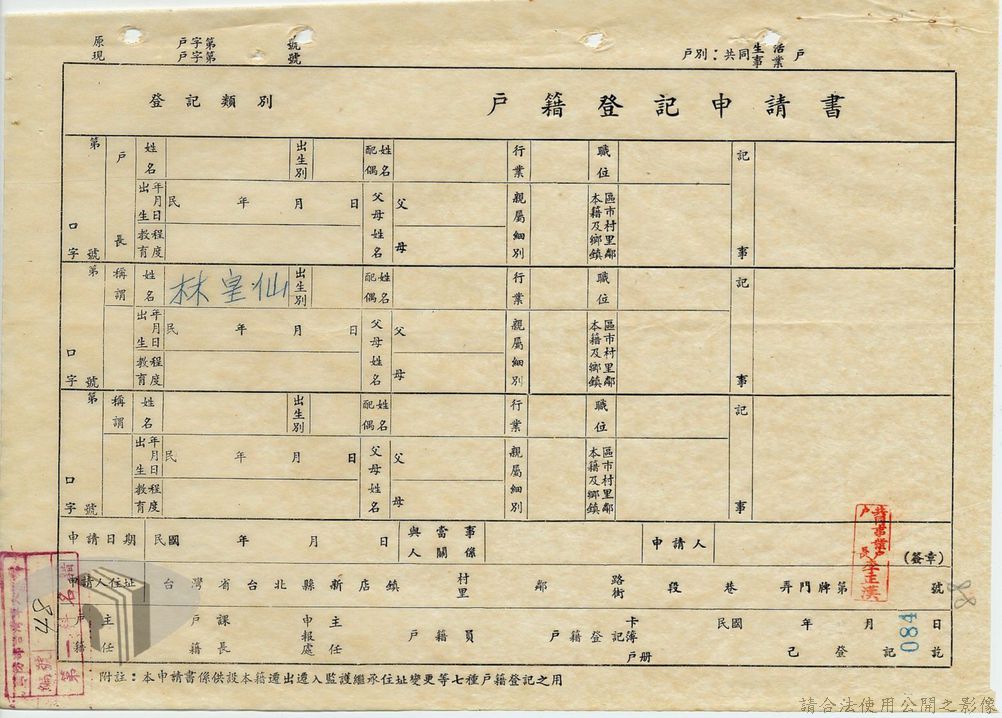 原 戶字第 號
現 戶字第 號
戶別：共同生活事業戶
登記類別 戶籍登記申請書
第 口字 號 戶長 姓名 出生別 配偶姓名 行業 職位 記事
出生年月日 民 年 月 日 父母姓名 父 母 親屬細別 本籍及鄉鎮區市村里鄰
教育程度
第 口字 號 稱謂 姓名 林皇仙 出生別 配偶姓名 行業 職位 記事
出生年月日 民 年 月 日 父母姓名 父 母 親屬細別 本籍及鄉鎮區市村里鄰
教育程度
第 口字 號 稱謂 姓名 出生別 配偶姓名 行業 職位 記事
出生年月日 民 年 月 日 父母姓名 父 母 親屬細別 本籍及鄉鎮區市村里鄰
教育程度
申請日期 民國 年 月 日 與當事人關係 申請人 (簽章)
共同事業戶
戶長李正漢
申請人住址 台灣省台北縣新店鎮 村里 鄰 路街 段 巷 弄門牌第 號
88
戶籍主任 戶籍課長 申報處主任 戶籍員 戶籍登記卡簿戶冊 民國 年 月 日
已登記訖
084
編號 48
第一
名
附註：本申請書係供設本籍遷出遷入監護繼承住址變更等七種戶籍登記之用
請合法使用公開之影像